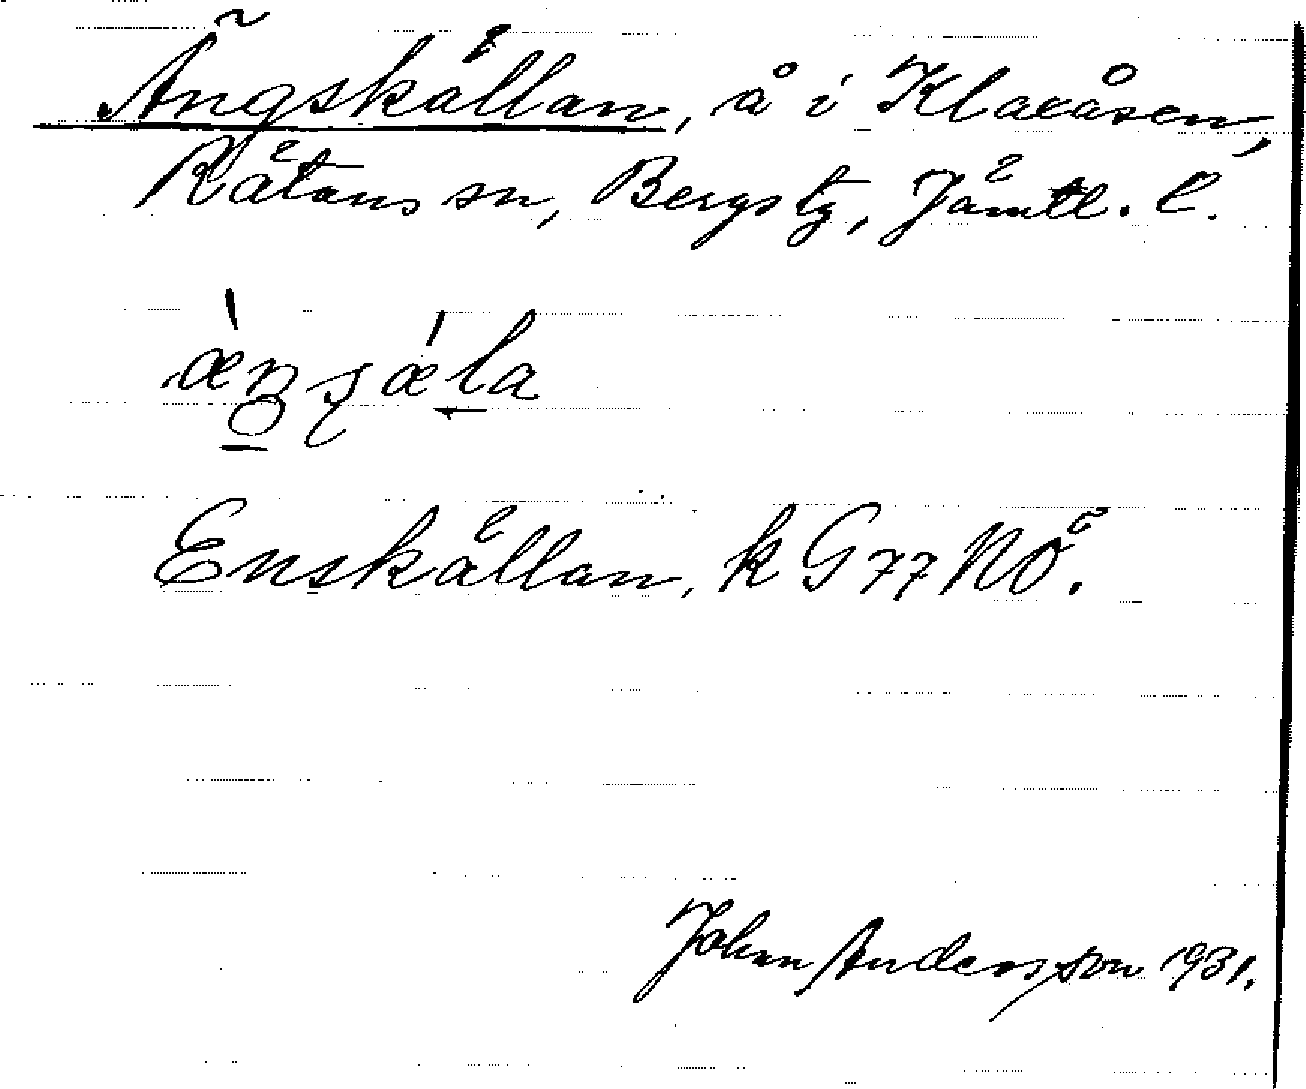 Ängskällan, å i Klaxåsen,
Rätans sn, Bergs tg, Jämtl. l.
Enskällan, k G77 NÖ.
John Andersson 1931.